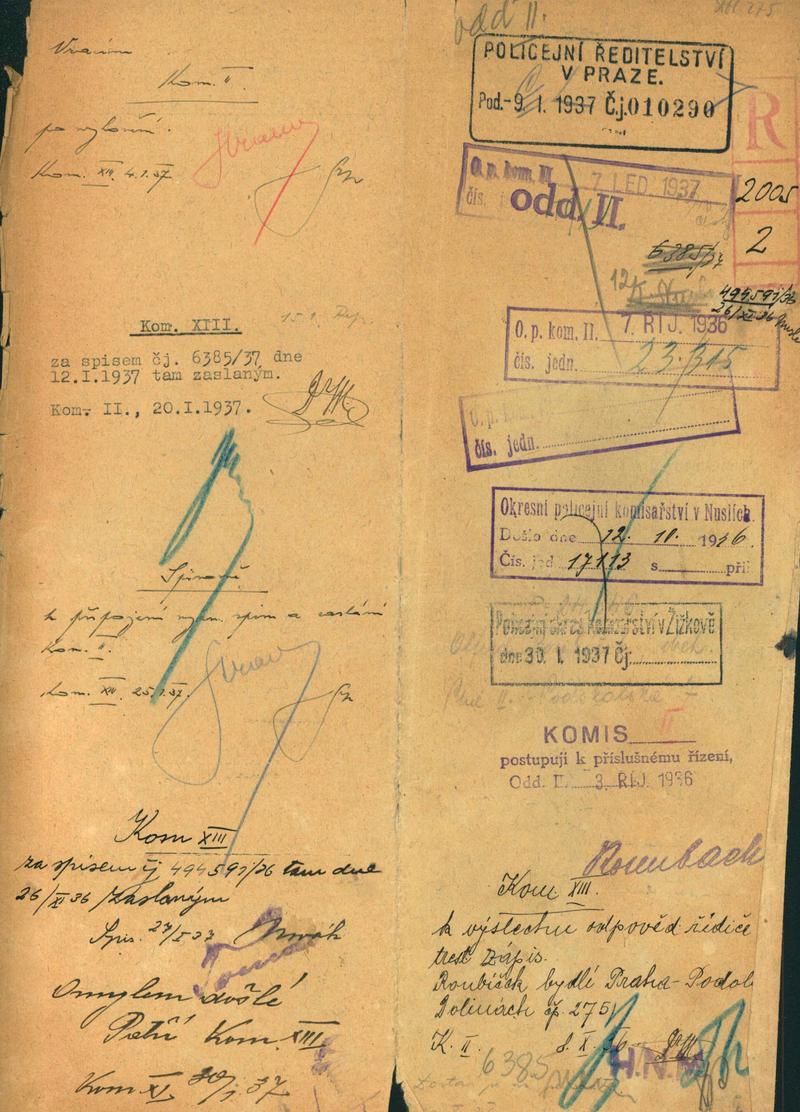 Vracím
Kom. II.
po vyřízení.
Kom. XIII. 4.1.37
Kom. XIII.
za spisem čj. 6385/37 dne
12.I.1937 tam zaslaným.
Kom. II., 20.I.1937.
Spisovně
k připojení a zaslání
Kom. II.
Kom. XIII. 25.1.37.
Kom XIII
za spisem čj 494591/36 tam dne
26/XI 36 zaslaným
Spis. 27/I 37
Omylem došlé
Patří Kom. XIII
Kom XI 30/1 37
odd II.
POLICEJNÍ ŘEDITELSTVÍ
V PRAZE.
Pod. -9. I. 1937 Č.j. 010290
R
2005
2
O. p. kom. II 7 LED 1937
čís. j
odd. II.
6385/37
494591/36
26/XI 36
O. p. kom. II. 7. ŘÍJ. 1936
čís. jedn. 23.315
O. p.
čís. jedn.
Okresní policejní komisařství v Nuslích.
Došlo dne 12. 10. 1936
Čís. jed 17113 s příl
Policejní okres. komisařství v Žižkově
dne 30. I. 1937 Čj.
KOMIS II
postupuji k příslušnému řízení,
Odd. II. 3. ŘÍJ. 1936
Rosenbach
Kom XIII.
k výslechu odpověd. řidiče
trest. zápis.
Roubíček bydlí Praha-Podol
Dolinách čp. 275
K. II. 8. X. 36
6385
H.N.